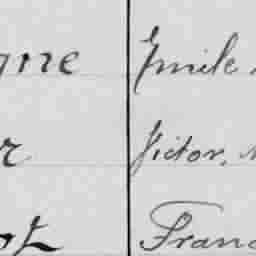 gne Emile
r Victor,
ot Franc